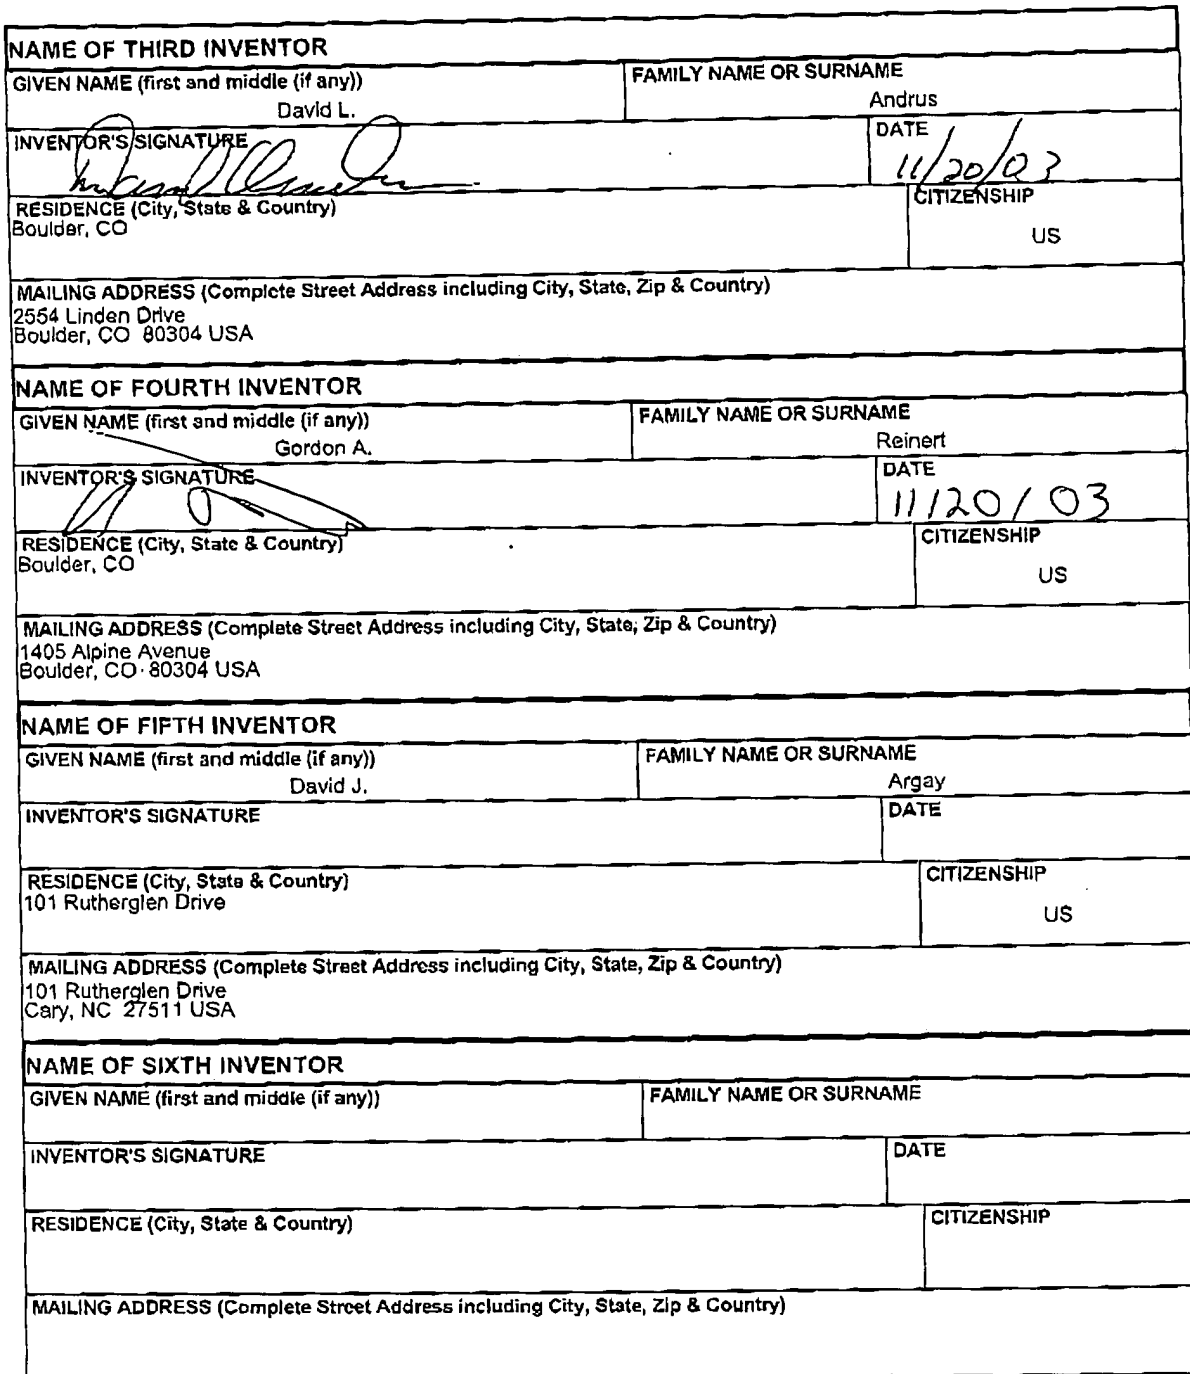 NAME OF THIRD INVENTOR
GIVEN NAME (first and middle (if any))
FAMILY NAME OR SURNAME
David L.
Andrus
INVENTOR'S SIGNATURE
DATE
11/20/03
RESIDENCE (City, State & Country)
Boulder, CO
CITIZENSHIP
US
MAILING ADDRESS (Complete Street Address including City, State, Zip & Country)
2554 Linden Drive
Boulder, CO 80304 USA
NAME OF FOURTH INVENTOR
GIVEN NAME (first and middle (if any))
FAMILY NAME OR SURNAME
Gordon A.
Reinert
INVENTOR'S SIGNATURE
DATE
11/20/03
RESIDENCE (City, State & Country)
Boulder, CO
CITIZENSHIP
US
MAILING ADDRESS (Complete Street Address including City, State, Zip & Country)
1405 Alpine Avenue
Boulder, CO 80304 USA
NAME OF FIFTH INVENTOR
GIVEN NAME (first and middle (if any))
FAMILY NAME OR SURNAME
David J.
Argay
INVENTOR'S SIGNATURE
DATE
RESIDENCE (City, State & Country)
101 Rutherglen Drive
CITIZENSHIP
US
MAILING ADDRESS (Complete Street Address including City, State, Zip & Country)
101 Rutherglen Drive
Cary, NC 27511 USA
NAME OF SIXTH INVENTOR
GIVEN NAME (first and middle (if any))
FAMILY NAME OR SURNAME
INVENTOR'S SIGNATURE
DATE
RESIDENCE (City, State & Country)
CITIZENSHIP
MAILING ADDRESS (Complete Street Address including City, State, Zip & Country)